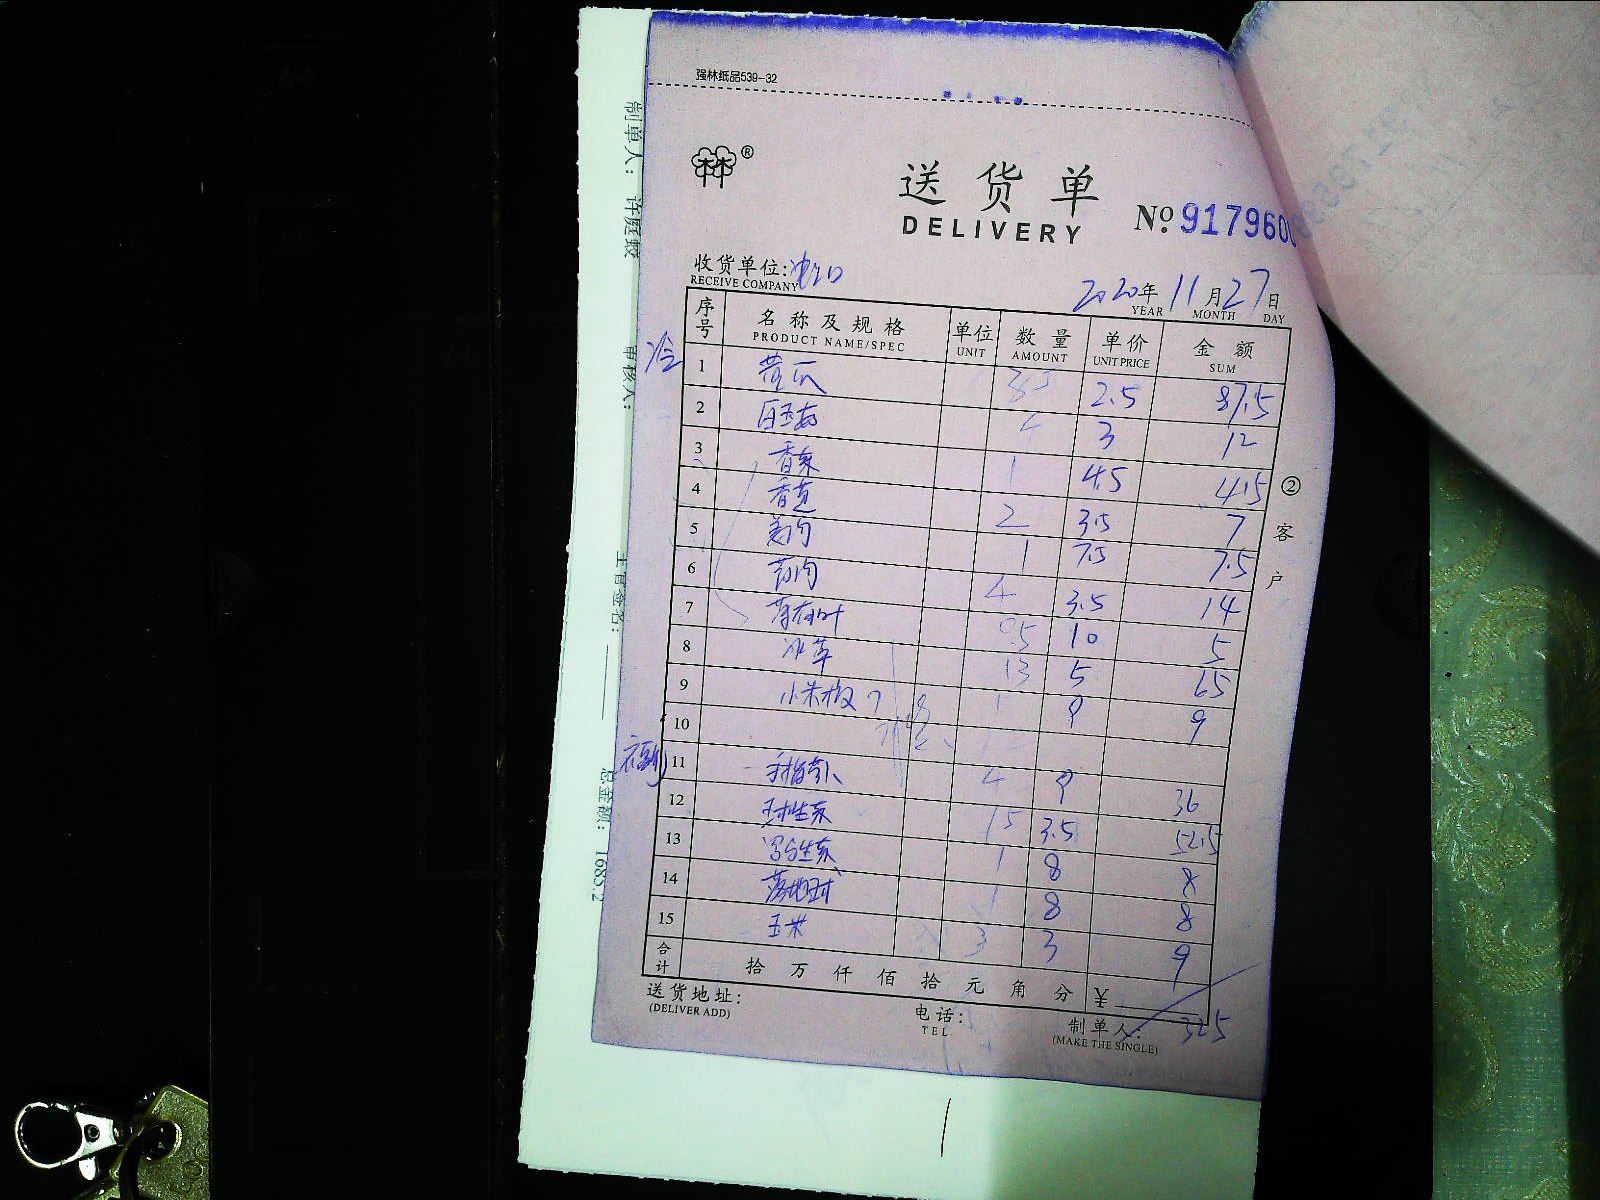 强林纸品539-32
®
送货单
DELIVERY
№ 917960
收货单位:
RECEIVE COMPANY
2020年 11月 27日
YEAR MONTH DAY
序号 名称及规格 单位 数量 单价 金额
PRODUCT NAME/SPEC UNIT AMOUNT UNIT PRICE SUM
冷
1 黄瓜 35 2.5 87.5
2 白玉菇 4 3 12
3 香菜 1 4.5 4.5
4 香芹 2 3.5 7
5 1 7.5 7.5
6 4 3.5 14
7 薄荷叶 0.5 10 5
8 冰草 13 5 65
9 小米椒 1 9 9
10
11 手指萝卜 4 9 36
12 球生菜 15 3.5 52.5
13 罗马生菜 1 8 8
14 1 8 8
15 玉米 3 3 9
合计 拾 万 仟 佰 拾 元 角 分 ¥
325
送货地址:
(DELIVER ADD)
电话:
TEL
制单人:
(MAKE THE SINGLE)
②客户
制单人: 许庭蛟
审核人:
主管签名:
总金额: 1685.2